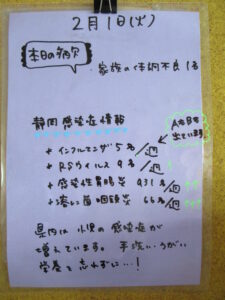 2月1日(火)
本日の病欠
・家族の体調不良 1名
静岡 感染症情報
+ インフルエンザ 5名/週
+ RSウイルス 9名/週
+ 感染性胃腸炎 931名/週
+ 溶レン菌咽頭炎 66名/週
県内は小児の感染症が
増えています。手洗い・うがい
栄養を忘れずに…!